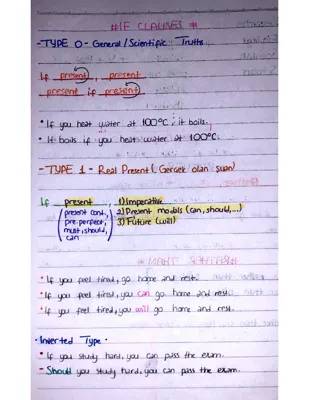 #IF CLAUSES #
-TYPE 0- General / Scientific Truths
If present, present
present if present.
• If you heat water at 100°C, it boils.
• It boils if you heat water at 100°C.
-TYPE 1 - Real Present (Gerçek olan şuan)
If present, 1) Imperative
(present cont., 2) Present modals (can, should,...)
pre. perfect, 3) Future (will)
must, should,
can)
• If you feel tired, go home and rest.
• If you feel tired, you can go home and rest.
• If you feel tired, you will go home and rest.
• Inverted Type •
• If you study hard, you can pass the exam.
- Should you study hard, you can pass the exam.